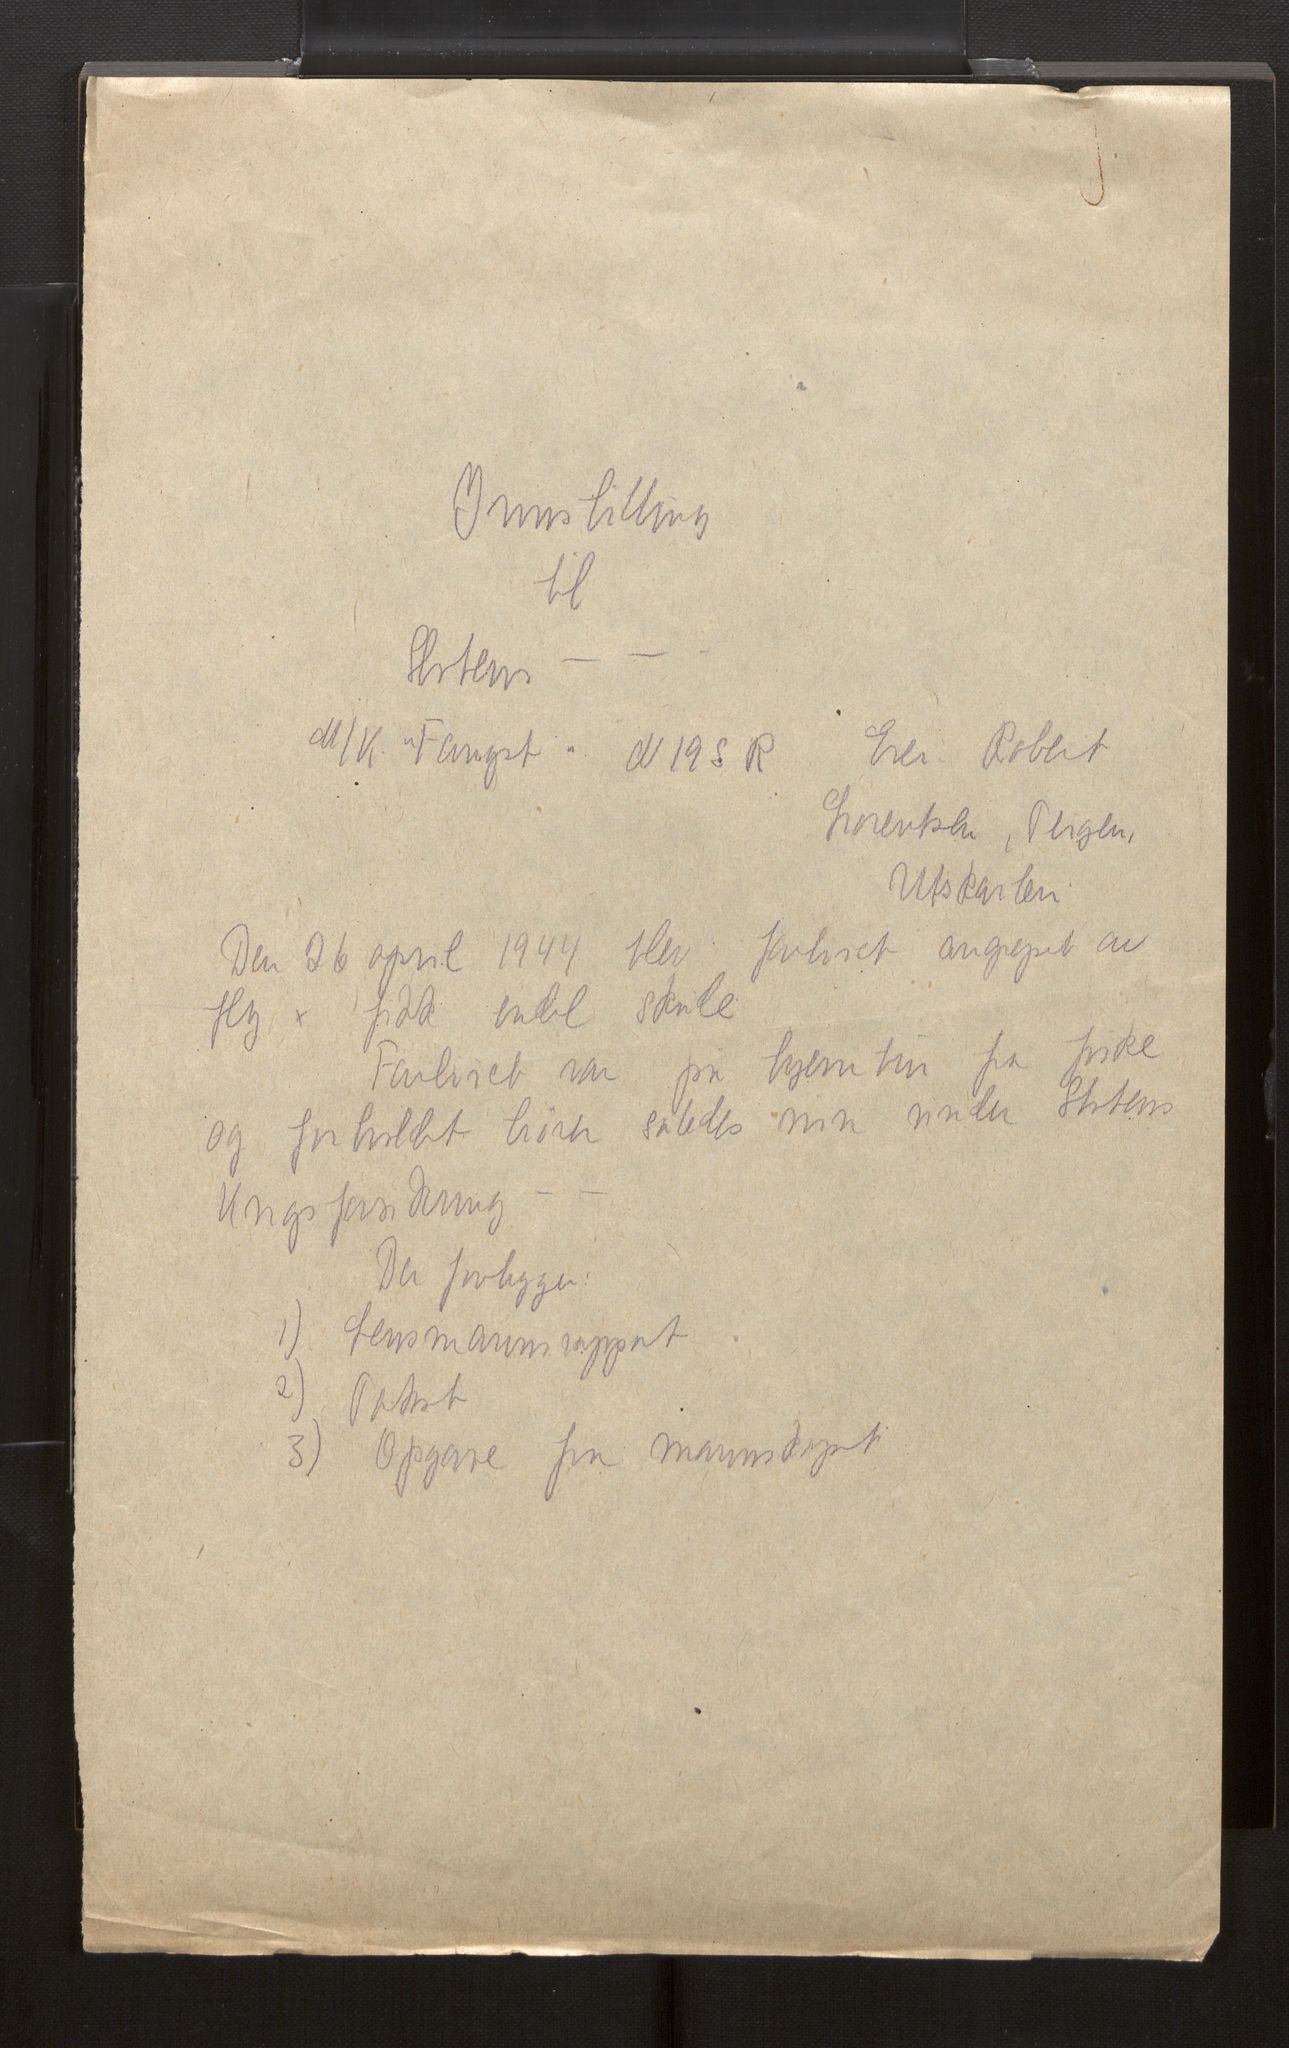 Innstilling
til
Statens — —
M/K. "Fangst" N 19 S R Eier. Robert
Lorentsen, Teigen,
Utskarpen
Den 26 april 1944 blev farkosten angrepet av
fly x fikk endel skade
Farkosten var på hjemtur fra fiske
og forholdet hører således inn under Statens
Krigsforsikring — —
Der foreligger:
1) Lensmannsrapport
2) Takst
3) Opgave fra mannskapet